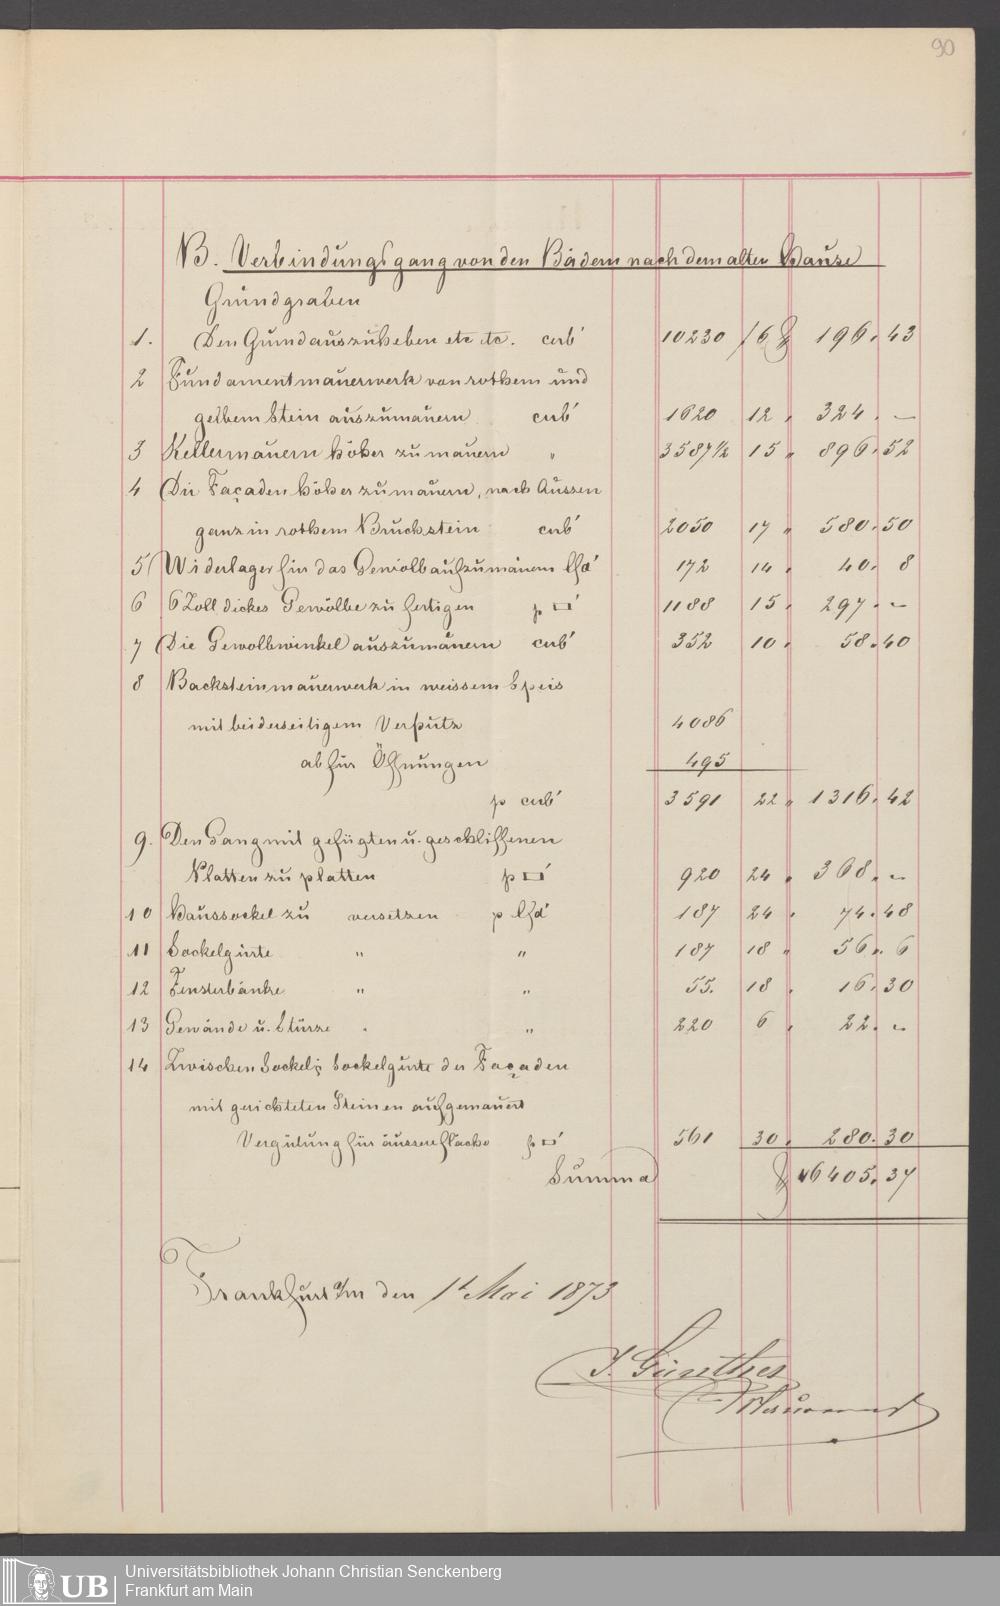 90
B. Verbindungsgang von den Bädern nach dem alten Hause
Grundgraben
1. Den Grund auszuheben etc etc. cub' 10230 16 196. 43
2 Fundamentmauerwerk von rothem und
gelbem Stein auszumauern cub' 1620 12 " 324. —
3 Kellermauern höher zu mauern " 3587½ 15 " 896. 52
4 Die Façaden höher zu mauern, nach Aussen
ganz in rothem Bruchstein cub' 2050 17 " 580. 50
5 Widerlager für das Gewölb aufzumauern lfd' 172 14 " 40. 8
6 6 Zoll dickes Gewölbe zu fertigen p □' 1188 15 " 297. —
7 Die Gewölbwinkel auszumauern cub' 352 10 " 58. 40
8 Backsteinmauerwerk in weissem Speis
mit beiderseitigem Verputz 4086
ab für Öffnungen 495
p cub' 3591 22 " 1316. 42
9. Den Gang mit gefügten u. geschliffenen
Platten zu platten p □' 920 24 " 368. —
10 Haussockel zu versetzen p lfd' 187 24 " 74. 48
11 Sockelgurte " " 187 18 " 56. 6
12 Fensterbänke " " 55. 18 " 16. 30
13 Gewände u. Stürze " " 220 6 " 22. —
14 Zwischen Sockel; Sockelgurte der Façaden
mit gerichteten Steinen aufgemauert
Vergütung für äussere Fläche p □' 561 30 " 280. 30
Summa 6405. 37
Frankfurt a/m den 1t Mai 1873
J. Günther
UB
Universitätsbibliothek Johann Christian Senckenberg
Frankfurt am Main